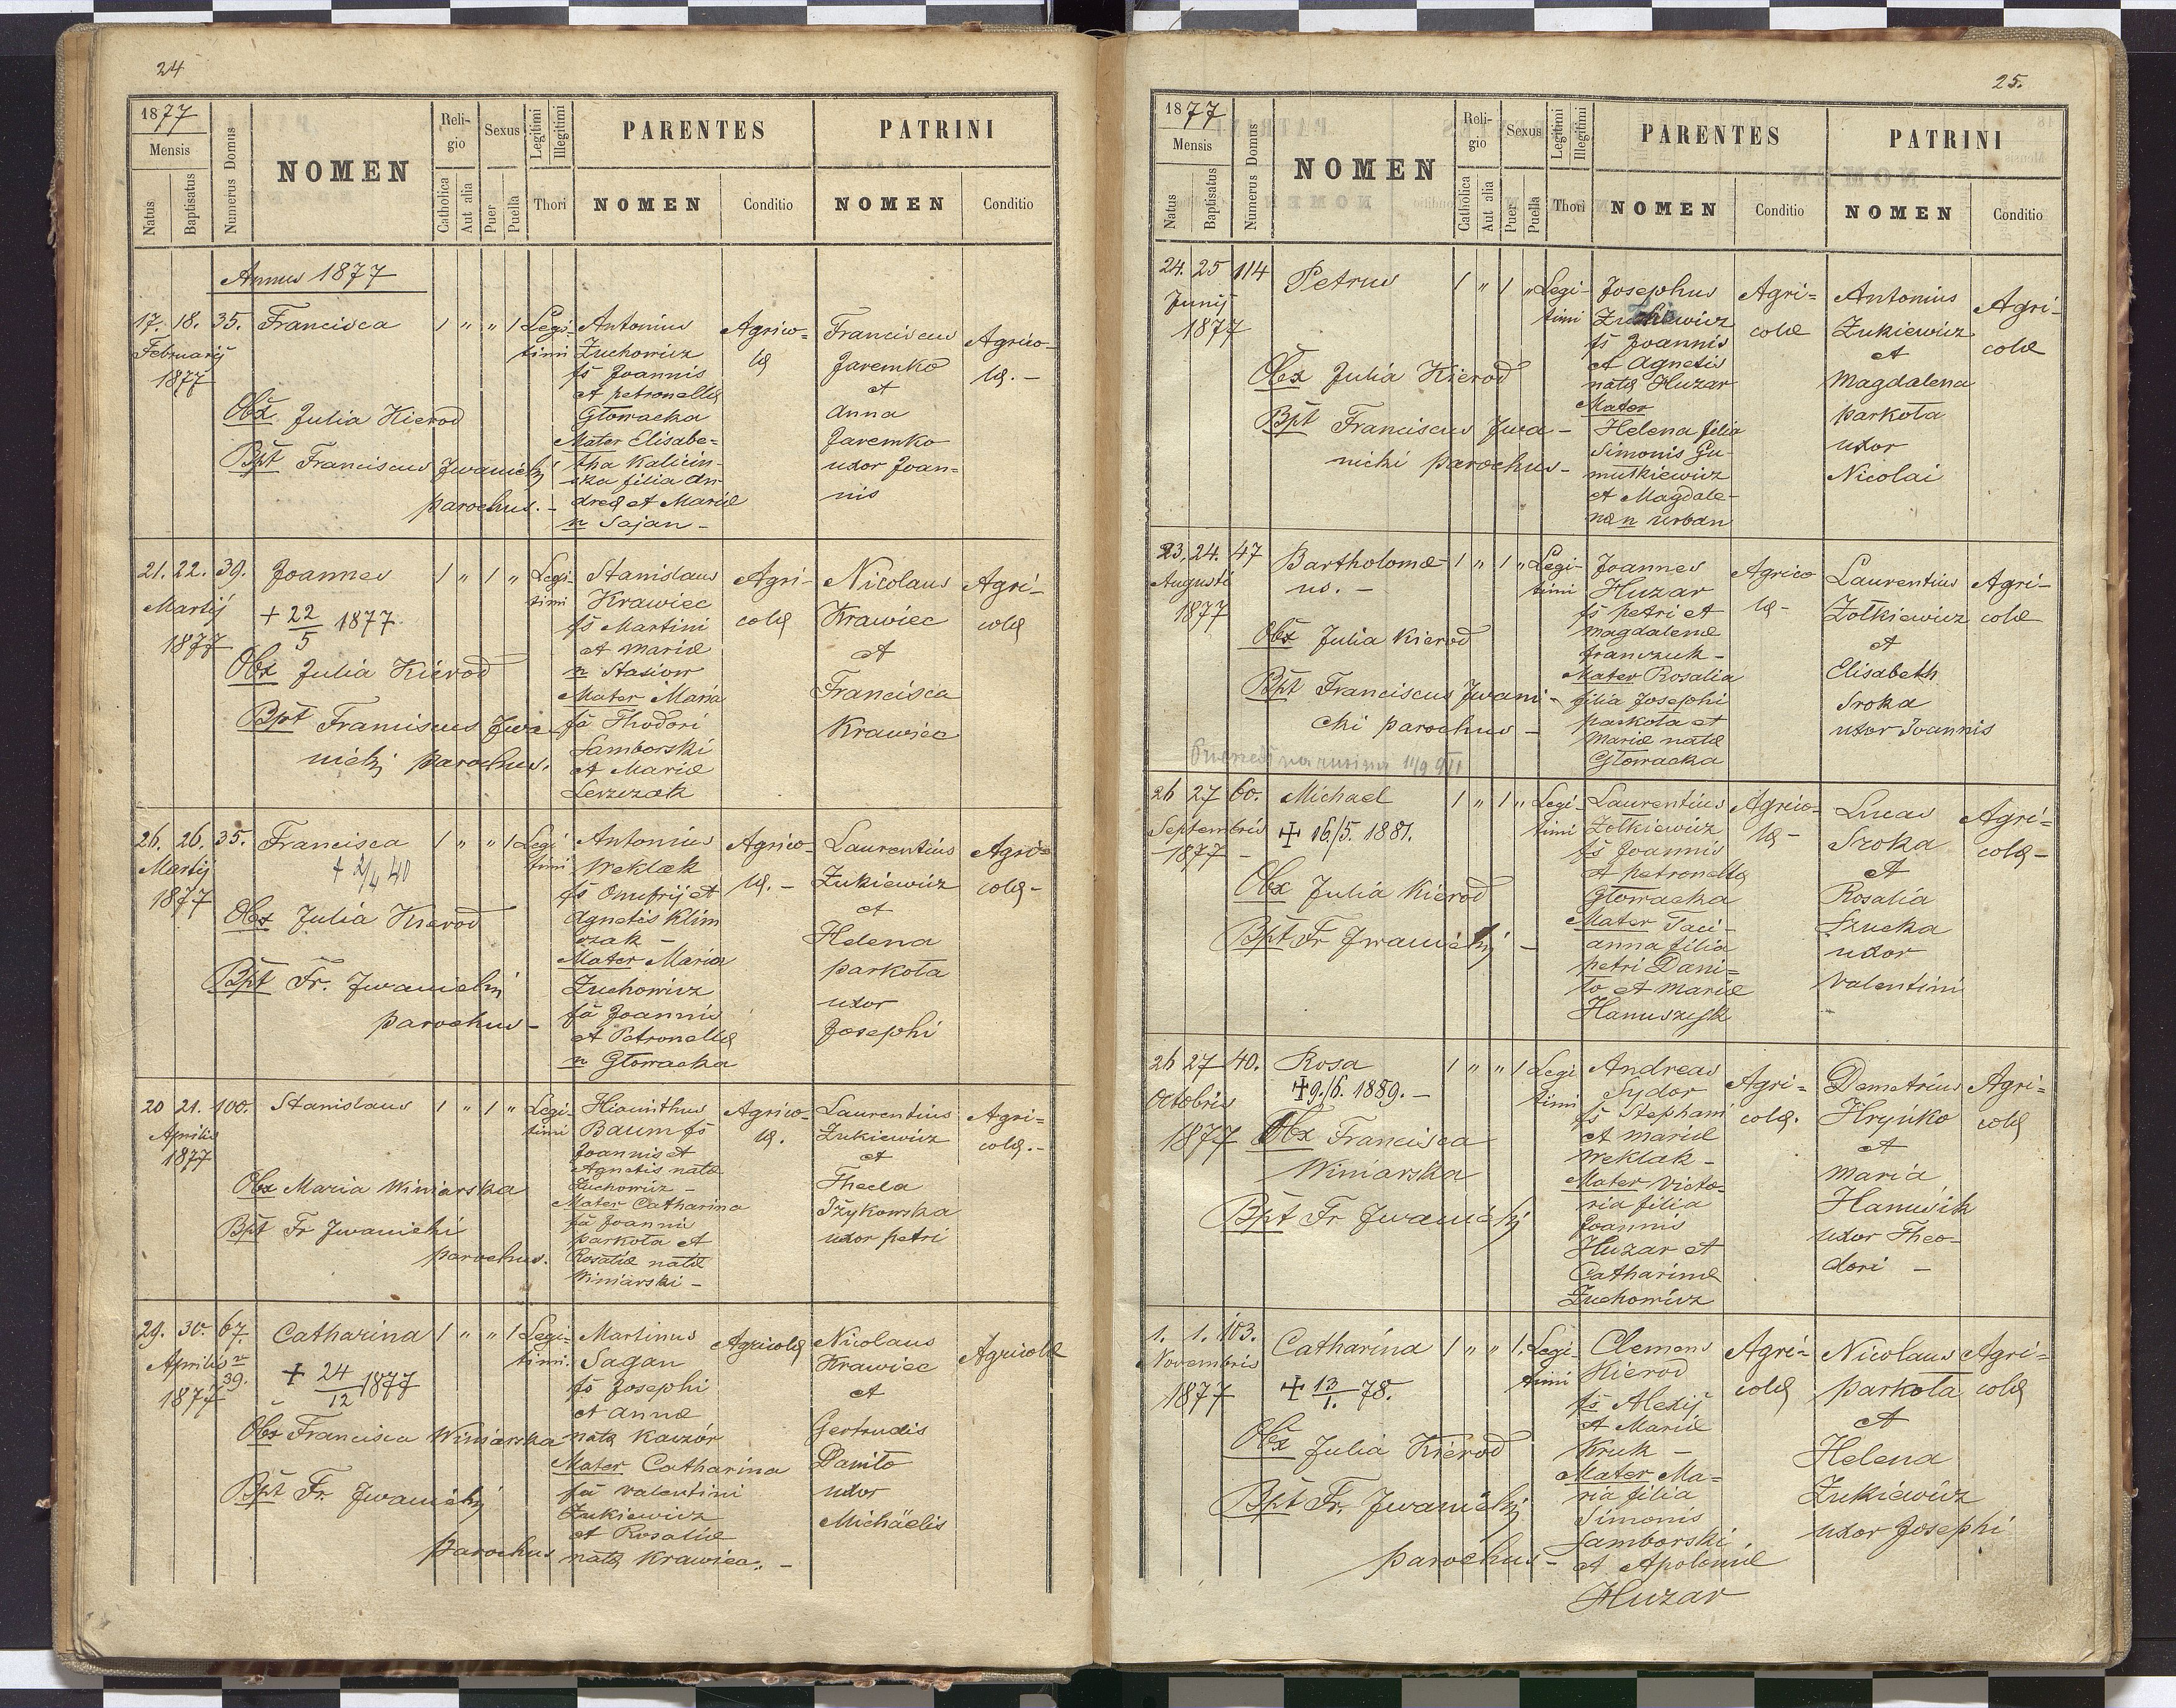 24
1877
Mensis
Natus
Baptisatus
Numerus Domus
NOMEN
Reli-
gio
Catholica
Aut alia
Sexus
Puer
Puella
Legitimi
Illegitimi
Thori
PARENTES
NOMEN
Conditio
PATRINI
NOMEN
Conditio
Annus 1877
17. 18. 35. Francisca 1 " " 1 Legi-
timi
Februarij
1877
Obx Julia Kierod
Bpt Franciscus Jwanicki
parochus. -
Antonius
Zuchowicz
fs Joannis
et petronellæ
Głowacka
Mater Elisabe=
tha Kalicin-
ska filia An-
dreæ et Mariæ
n Sajan -
Agrico-
læ
Franciscus
Jaremko
et
Anna
Jaremko
uxor Joan=
nis
Agrico-
læ. -
21. 22. 39. Joannes 1 " 1 " Legi-
timi
Martij
1877
+ 22/5 1877.
Obx Julia Kierod
Bpt Franciscus Jwa
nicki parochus.
Stanislaus
Krawiec
fs Martini
et Mariæ
n Stasiow
Mater Maria
fa Thodori
Samborski
et Mariæ
Leszczak
Agri-
colæ
Nicolaus
Krawiec
et
Francisca
Krawiec
Agri-
colæ
26. 26. 35. Francisca 1 " " 1 Legi
timi
Martij
1877
+ 2/4 40
Obx Julia Kierod
Bpt Fr. Jwanicki
parochus -
Antonius
Weklak
fs Onufrij et
Agnetis Klim
czak -
Mater Maria
Zuchowicz
fa Joannis
et Petronellæ
n Głowacka
Agrico-
læ. -
Laurentius
Zukiewicz
et
Helena
parkoła
uxor
Josephi
Agri=
colæ -
20 21. 100. Stanislaus 1 " 1 " Legi-
timi
Aprilis
1877
Obx Maria Winiarska
Bpt Fr Jwanicki
parochus.
Hiacinthus
Baum fs
Joannis et
Agnetis natæ
Zuchowicz -
Mater Catharina
fa Joannis
parkoła et
Rosaliæ natæ
Winiarski -
Agrico-
læ.
Laurentius
Zukiewicz
et
Thecla
uxor petri
Agri-
colæ. -
29. 30. 67. Catharina 1 " " 1 Legi-
timi.
Aprilis
39.
1877
+ 24/12 1877
Obx Francisca Winiarska
Bpt Fr. Jwanicki
parochus
Martinus
Sagan
fs Josephi
et Annæ
natæ Kaczór
Mater Catharina
fa Valentini
Zukiewicz
et Rosaliæ
natæ Krawiec. -
Agricolæ
Nicolaus
Krawiec
et
Gertrudis
Daniło
uxor
Michäelis
Agricolæ
25.
1877
Mensis
Natus
Baptisatus
Numerus Domus
NOMEN
Reli-
gio
Catholica
Aut alia
Sexus
Puer
Puella
Legitimi
Illegitimi
Thori
PARENTES
NOMEN
Conditio
PATRINI
NOMEN
Conditio
24. 25 114 Petrus 1 " 1 " Legi-
timi
Junij
1877
Obx Julia Kierod
Bpt Franciscus Jwa-
nicki parochus -
Josephus
fs Joannis
et Agnetis
natæ Huzar
Mater
Helena filia
Simonis Gu-
mułkiewicz
et Magdale-
næ n Urban
Agri=
colæ
Antonius
Zukiewicz
et
Magdalena
parkoła
uxor
Nicolai
Agri-
colæ
23. 24. 47 Bartholomæ- 1 " 1 " Legi-
timi
us. -
Augusti
1877
Obx Julia Kierod
Bpt Franciscus Jwani-
cki parochus -
Joannes
Huzar
fs petri et
Magdalenæ
franczuk -
Mater Rosalia
filia Josephi
parkoła et
Mariæ natæ
Głowacka
Agrico
læ -
Laurentius
Zołkiewicz
et
Elisabeth
Sroka
uxor Joannis
Agri-
colæ
26 27 60. Michael 1 " 1 " Legi-
timi
Septembris
1877 -
+ 16/5. 1881.
Obx Julia Kierod
Bpt Fr Jwanicki -
Laurentius
Zołkiewicz
fs Joannis
et petronellæ
Głowacka
Mater Taci-
anna filia
petri Dani=
ło et Mariæ
Agrico-
læ -
Lucas
Sroka
et
Rosalia
Szucka
uxor
Valentini
Agri=
colæ -
26 27 40. Rosa 1 " " 1 Legi
timi
Octobris
1877
+ 9./6. 1889. -
Obx Francisca
Winiarska
Bpt Fr Jwanicki
Andreas
Sydor
fs Stephani
et Mariæ
Weklak -
Mater Victo-
ria filia
Joannis
Huzar et
Catharinæ
Zuchowicz
Agri=
colæ.
Demetrius
Hryńko
et
Maria
Hanusik
uxor Theo-
dori -
Agri=
colæ
1. 1. 103. Catharina 1 " " 1. Legi-
timi
Novembris
1877
+ 13/1. 78.
Obx Julia Kierod
Bpt Fr. Jwanicki
parochus -
Clemens
Kierod
fs Alexij
et Mariæ
Kruk -
Mater Ma=
ria filia
Simonis
Samborski
et Apoloniæ
Huzar
Agri=
colæ
Nicolaus
parkoła
et
Helena
Zukiewicz
uxor Josephi
Agri=
colæ